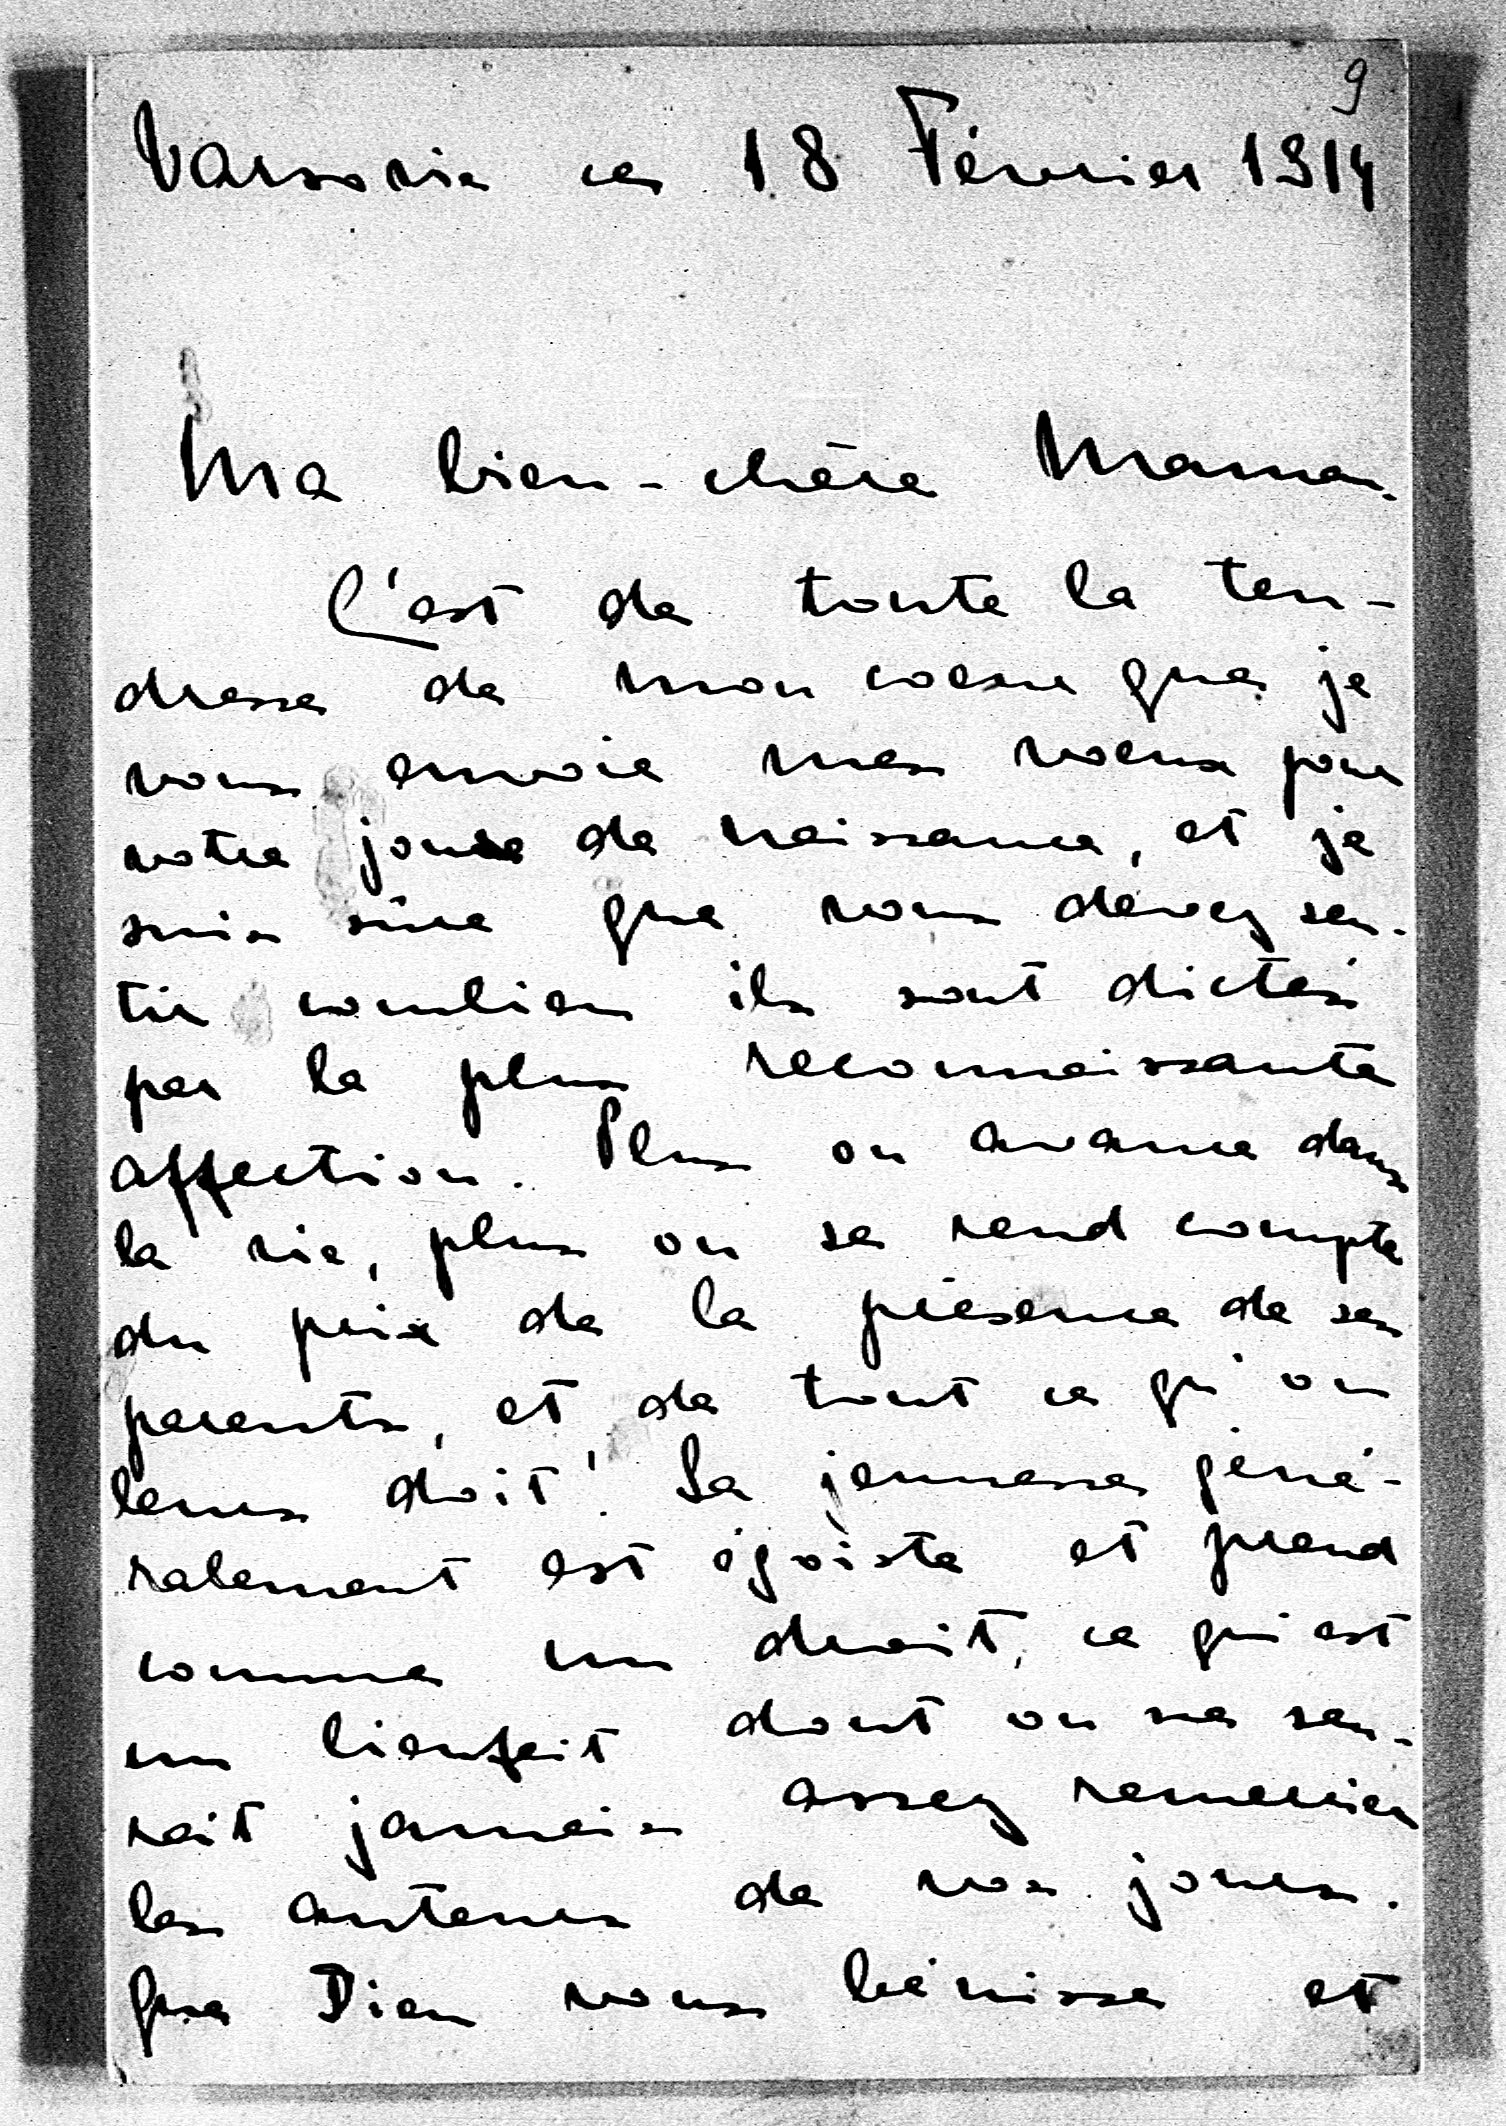 9
Varsovie ce 18 Février 1914
Ma bien-chère Maman.
C'est de toute la ten-
dresse de mon coeur que je
vous envoie mes voeux pour
votre jour de naissance, et je
suis sûre que vous devez sen-
tir combien ils sont dictés
par la plus reconnaissante
affection. Plus on avance dans
la vie, plus on se rend compte
du prix de la présence de ses
parents, et de tout ce qu'on
leurs doit! La jeunesse géné-
ralement est égoïste et prend
comme un droit, ce qui est
un bienfait dont on ne sau-
rait jamais assez remercier
les auteurs de nos jours.
Que Dieu vous bénisse et